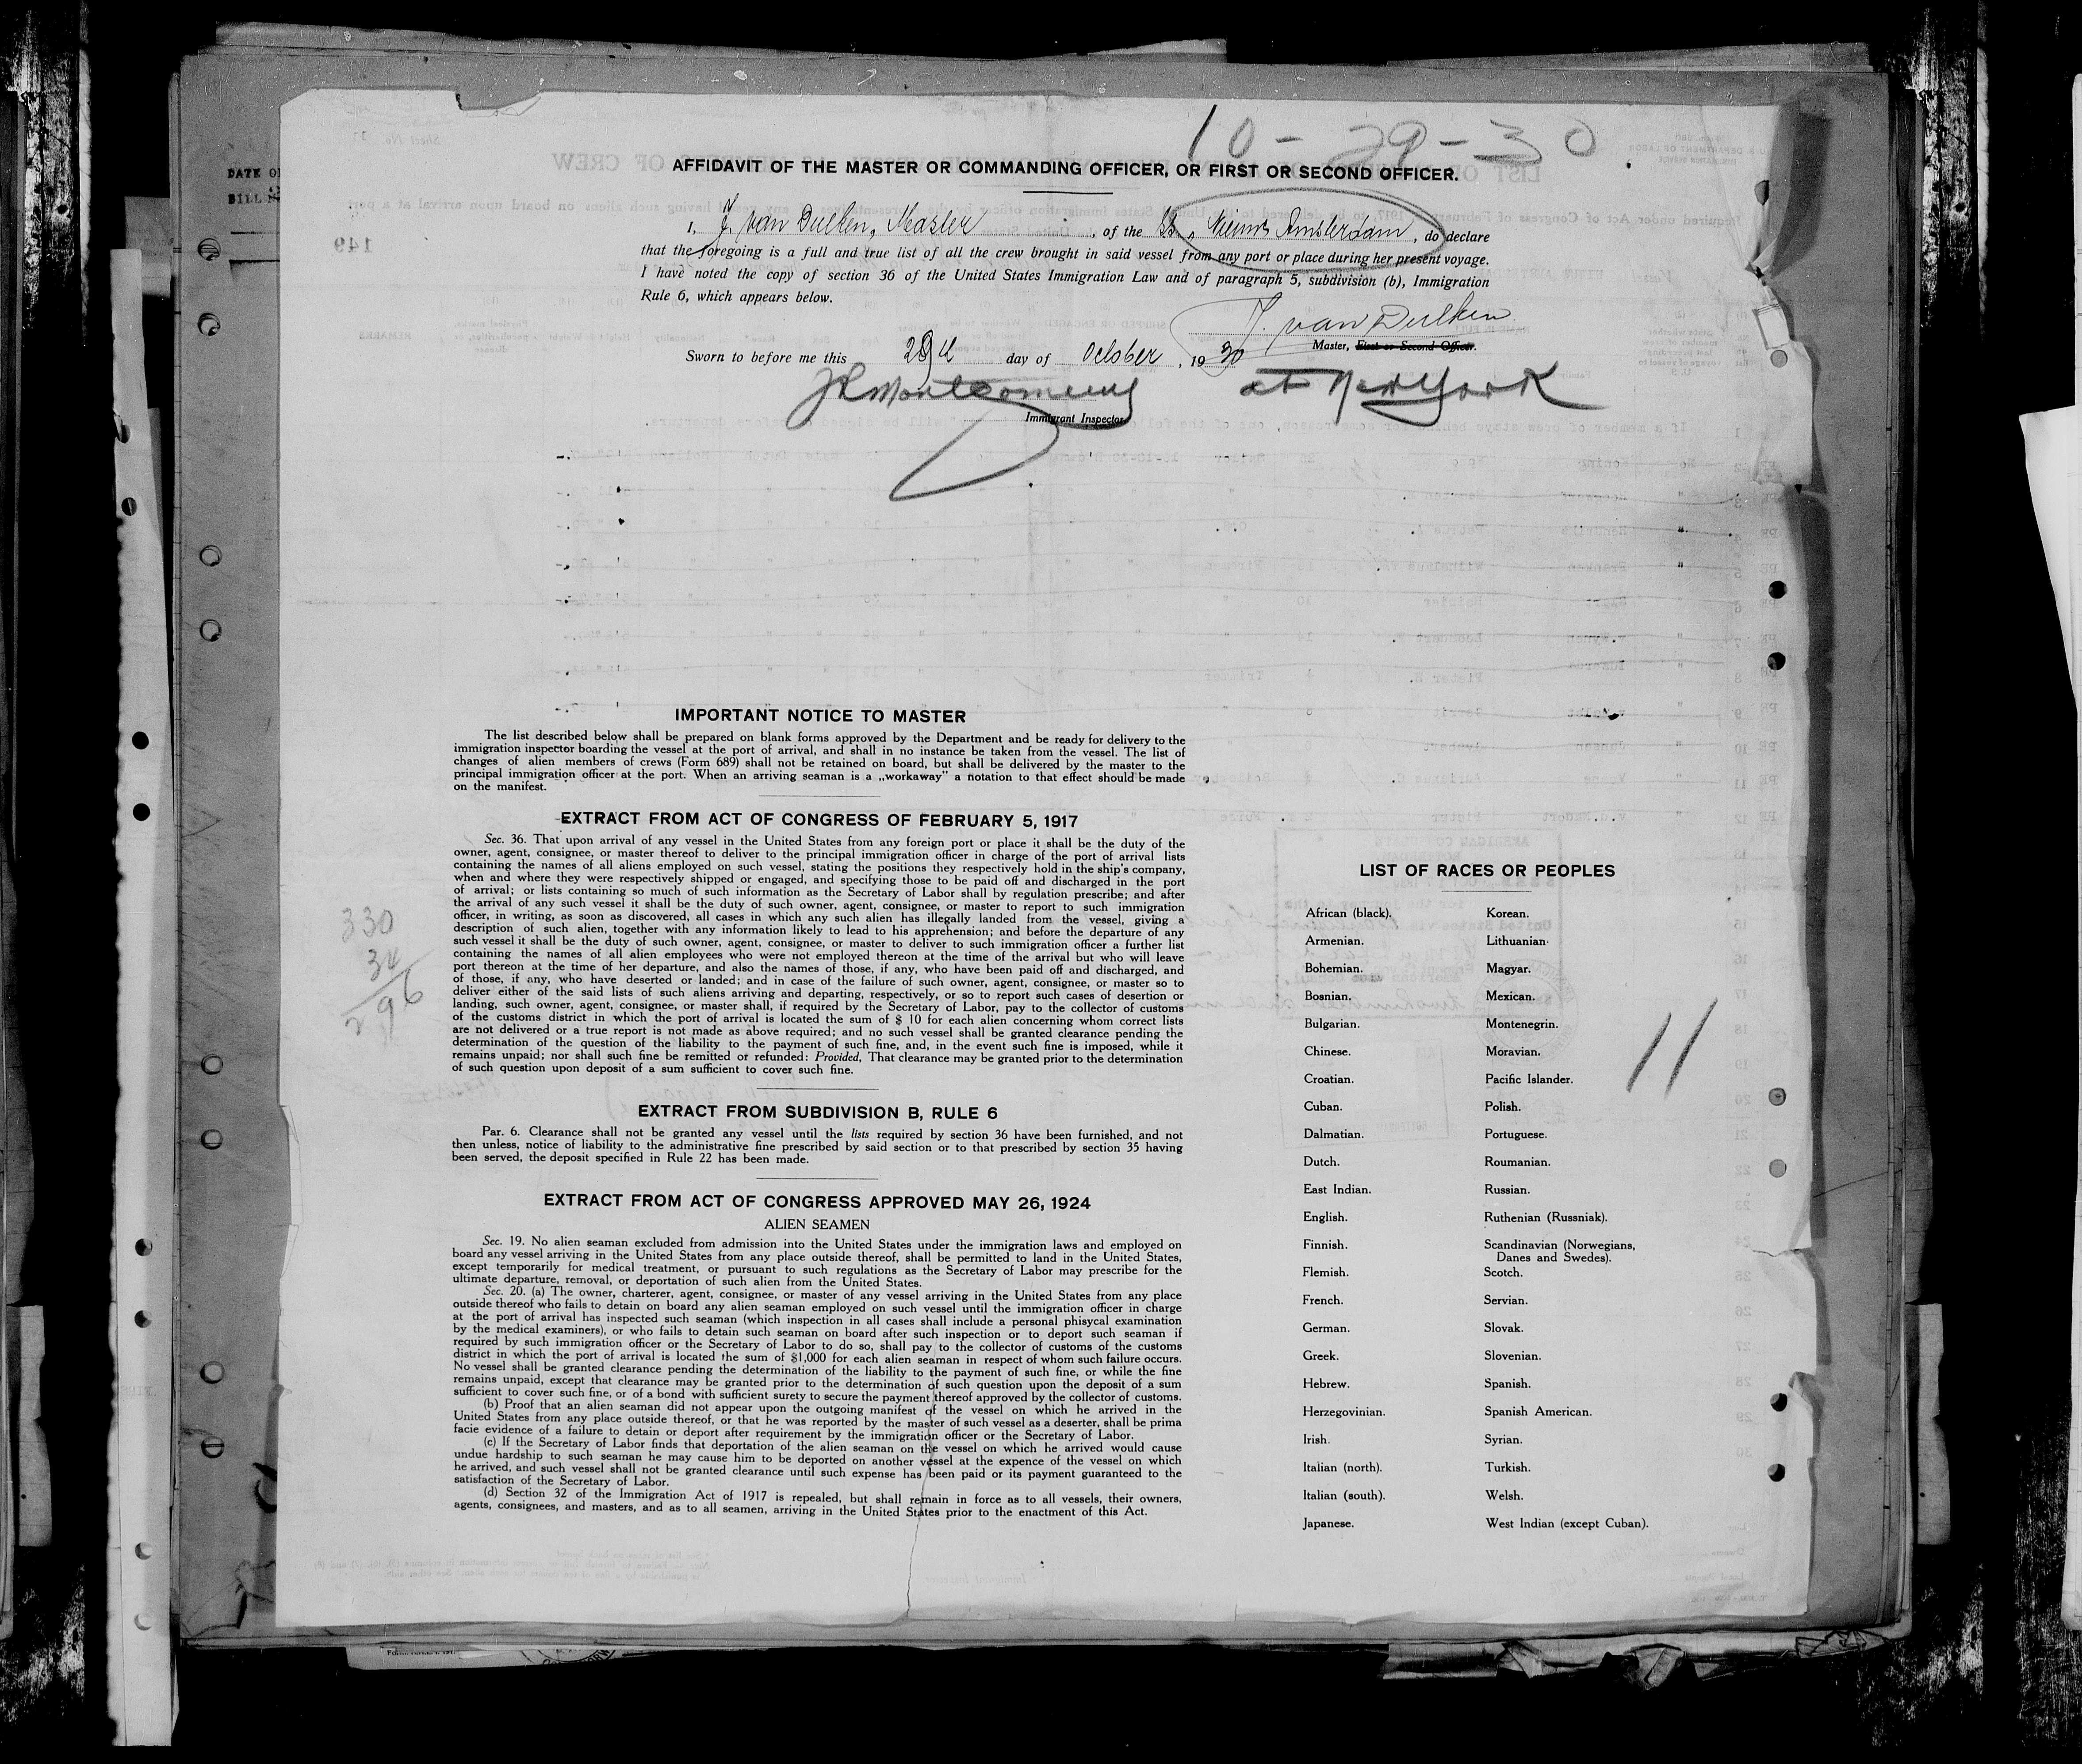 10-29-30
DATE O
BILL
AFFIDAVIT OF THE MASTER OR COMMANDING OFFICER, OR FIRST OR SECOND OFFICER.
I, J. van Dulken, Master, of the SS. „Nieuw Amsterdam, do declare
that the foregoing is a full and true list of all the crew brought in said vessel from any port or place during her present voyage.
I have noted the copy of section 36 of the United States Immigration Law and of paragraph 5, subdivision (b), Immigration
Rule 6, which appears below.
J. van Dulken
Master, First or Second Officer.
Sworn to before me this 29th day of October, 1930
Montgomery at New York
Immigrant Inspector
IMPORTANT NOTICE TO MASTER
The list described below shall be prepared on blank forms approved by the Department and be ready for delivery to the
immigration inspector boarding the vessel at the port of arrival, and shall in no instance be taken from the vessel. The list of
changes of alien members of crews (Form 689) shall not be retained on board, but shall be delivered by the master to the
principal immigration officer at the port. When an arriving seaman is a „workaway" a notation to that effect should be made
on the manifest.
EXTRACT FROM ACT OF CONGRESS OF FEBRUARY 5, 1917
Sec. 36. That upon arrival of any vessel in the United States from any foreign port or place it shall be the duty of the
owner, agent, consignee, or master thereof to deliver to the principal immigration officer in charge of the port of arrival lists
containing the names of all aliens employed on such vessel, stating the positions they respectively hold in the ship's company,
when and where they were respectively shipped or engaged, and specifying those to be paid off and discharged in the port
of arrival; or lists containing so much of such information as the Secretary of Labor shall by regulation prescribe; and after
the arrival of any such vessel it shall be the duty of such owner, agent, consignee, or master to report to such immigration
officer, in writing, as soon as discovered, all cases in which any such alien has illegally landed from the vessel, giving a
description of such alien, together with any information likely to lead to his apprehension; and before the departure of any
such vessel it shall be the duty of such owner, agent, consignee, or master to deliver to such immigration officer a further list
containing the names of all alien employees who were not employed thereon at the time of the arrival but who will leave
port thereon at the time of her departure, and also the names of those, if any, who have been paid off and discharged, and
of those, if any, who have deserted or landed; and in case of the failure of such owner, agent, consignee, or master so to
deliver either of the said lists of such aliens arriving and departing, respectively, or so to report such cases of desertion or
landing, such owner, agent, consignee, or master shall, if required by the Secretary of Labor, pay to the collector of customs
of the customs district in which the port of arrival is located the sum of $ 10 for each alien concerning whom correct lists
are not delivered or a true report is not made as above required; and no such vessel shall be granted clearance pending the
determination of the question of the liability to the payment of such fine, and, in the event such fine is imposed, while it
remains unpaid; nor shall such fine be remitted or refunded: Provided, That clearance may be granted prior to the determination
of such question upon deposit of a sum sufficient to cover such fine.
330
34
296
EXTRACT FROM SUBDIVISION B, RULE 6
Par. 6. Clearance shall not be granted any vessel until the lists required by section 36 have been furnished, and not
then unless, notice of liability to the administrative fine prescribed by said section or to that prescribed by section 35 having
been served, the deposit specified in Rule 22 has been made.
EXTRACT FROM ACT OF CONGRESS APPROVED MAY 26, 1924
ALIEN SEAMEN
Sec. 19. No alien seaman excluded from admission into the United States under the immigration laws and employed on
board any vessel arriving in the United States from any place outside thereof, shall be permitted to land in the United States,
except temporarily for medical treatment, or pursuant to such regulations as the Secretary of Labor may prescribe for the
ultimate departure, removal, or deportation of such alien from the United States.
Sec. 20. (a) The owner, charterer, agent, consignee, or master of any vessel arriving in the United States from any place
outside thereof who fails to detain on board any alien seaman employed on such vessel until the immigration officer in charge
at the port of arrival has inspected such seaman (which inspection in all cases shall include a personal phisycal examination
by the medical examiners), or who fails to detain such seaman on board after such inspection or to deport such seaman if
required by such immigration officer or the Secretary of Labor to do so, shall pay to the collector of customs of the customs
district in which the port of arrival is located the sum of $1,000 for each alien seaman in respect of whom such failure occurs.
No vessel shall be granted clearance pending the determination of the liability to the payment of such fine, or while the fine
remains unpaid, except that clearance may be granted prior to the determination of such question upon the deposit of a sum
sufficient to cover such fine, or of a bond with sufficient surety to secure the payment thereof approved by the collector of customs.
(b) Proof that an alien seaman did not appear upon the outgoing manifest of the vessel on which he arrived in the
United States from any place outside thereof, or that he was reported by the master of such vessel as a deserter, shall be prima
facie evidence of a failure to detain or deport after requirement by the immigration officer or the Secretary of Labor.
(c) If the Secretary of Labor finds that deportation of the alien seaman on the vessel on which he arrived would cause
undue hardship to such seaman he may cause him to be deported on another vessel at the expence of the vessel on which
he arrived, and such vessel shall not be granted clearance until such expense has been paid or its payment guaranteed to the
satisfaction of the Secretary of Labor.
(d) Section 32 of the Immigration Act of 1917 is repealed, but shall remain in force as to all vessels, their owners,
agents, consignees, and masters, and as to all seamen, arriving in the United States prior to the enactment of this Act.
LIST OF RACES OR PEOPLES
African (black).
Armenian.
Bohemian.
Bosnian.
Bulgarian.
Chinese.
Croatian.
Cuban.
Dalmatian.
Dutch.
East Indian.
English.
Finnish.
Flemish.
French.
German.
Greek.
Hebrew.
Herzegovinian.
Irish.
Italian (north).
Italian (south).
Japanese.
Korean.
Lithuanian.
Magyar.
Mexican.
Montenegrin.
Moravian.
Pacific Islander.
Polish.
Portuguese.
Roumanian.
Russian.
Ruthenian (Russniak).
Scandinavian (Norwegians,
Danes and Swedes).
Scotch.
Servian.
Slovak.
Slovenian.
Spanish.
Spanish American.
Syrian.
Turkish.
Welsh.
West Indian (except Cuban).
11